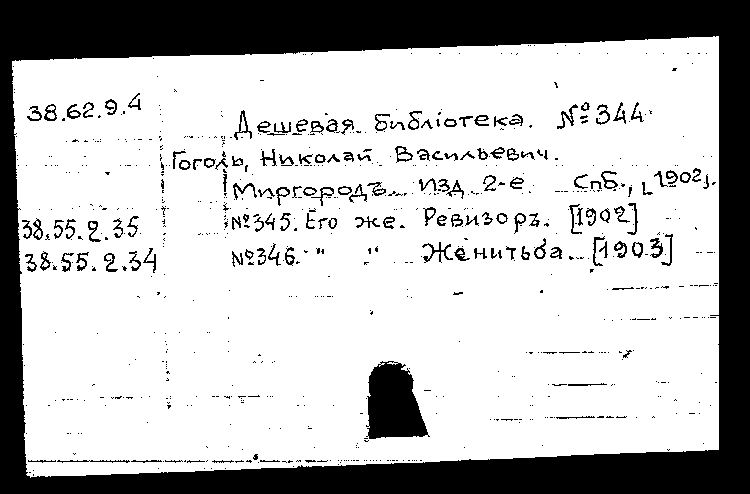 38.62.9.4 Дешевая библіотека. № 344
Гоголь, Николай Васильевич.
Миргородъ. Изд. 2-е Спб., [1902].
38.55.2.35 №345. Его же. Ревизоръ. [1902]
38.55.2.34 №346. " " Женитьба. [1903]